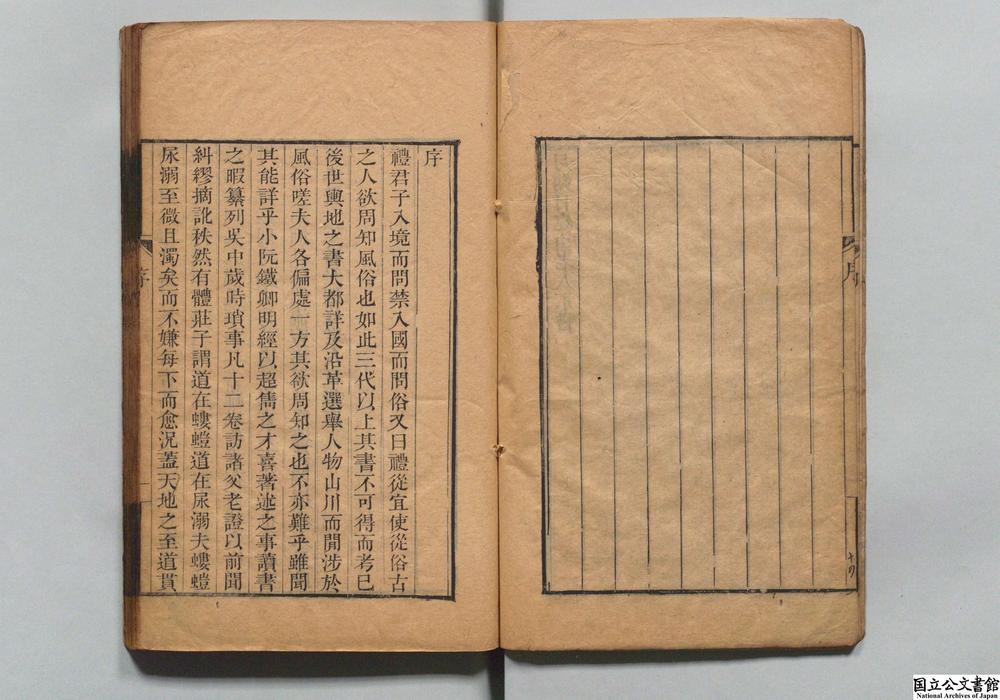 序
禮君子入境而問禁入國而問俗又曰禮從宜使從俗古
之人欲周知風俗也如此三代以上其書不可得而考已
後世輿地之書大都詳及沿革選舉人物山川而閒涉於
風俗嗟夫人各偏處一方其欲周知之也不亦難乎雖聞
其能詳乎小阮鐵卿明經以超雋之才喜著述之事讀書
之暇纂列吳中歲時瑣事凡十二卷訪諸父老證以前聞
糾繆摘訛秩然有體莊子謂道在螻螘道在尿溺夫螻螘
尿溺至微且濁矣而不嫌每下而愈況蓋天地之至道貫
序
国立公文書館
National Archives of Japan